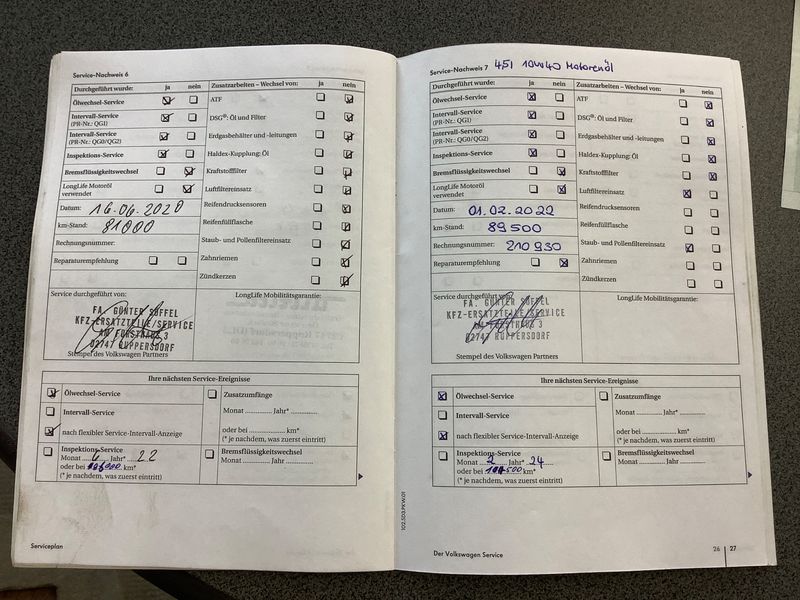 Service-Nachweis 6
Durchgeführt wurde: ja nein
Ölwechsel-Service
Intervall-Service
(PR-Nr.: QG1)
Intervall-Service
(PR-Nr.: QG0/QG2)
Inspektions-Service
Bremsflüssigkeitswechsel
LongLife Motoröl
verwendet
Datum: 16.06.2020
km-Stand: 81000
Rechnungsnummer:
Reparaturempfehlung
Zusatzarbeiten – Wechsel von: ja nein
ATF
DSG®: Öl und Filter
Erdgasbehälter und -leitungen
Haldex-Kupplung: Öl
Kraftstofffilter
Luftfiltereinsatz
Reifendrucksensoren
Reifenfüllflasche
Staub- und Pollenfiltereinsatz
Zahnriemen
Zündkerzen
Service durchgeführt von:
FA. GÜNTER SÖFFEL
KFZ-ERSATZTEILE/SERVICE
AM FORSTHAUS 3
02747 RUPPERSDORF
Stempel des Volkswagen Partners
LongLife Mobilitätsgarantie:
Ihre nächsten Service-Ereignisse
Ölwechsel-Service
Intervall-Service
nach flexibler Service-Intervall-Anzeige
Inspektions-Service
Monat 6 Jahr* 22
oder bei km*
(* je nachdem, was zuerst eintritt)
Zusatzumfänge
Monat ............ Jahr* ............
oder bei ............ km*
(* je nachdem, was zuerst eintritt)
Bremsflüssigkeitswechsel
Monat ............ Jahr ............
Serviceplan
Service-Nachweis 7 4,5l 10W40 Motorenöl
Durchgeführt wurde: ja nein
Ölwechsel-Service
Intervall-Service
(PR-Nr.: QG1)
Intervall-Service
(PR-Nr.: QG0/QG2)
Inspektions-Service
Bremsflüssigkeitswechsel
LongLife Motoröl
verwendet
Datum: 01.02.2022
km-Stand: 89500
Rechnungsnummer: 210930
Reparaturempfehlung
Zusatzarbeiten – Wechsel von: ja nein
ATF
DSG®: Öl und Filter
Erdgasbehälter und -leitungen
Haldex-Kupplung: Öl
Kraftstofffilter
Luftfiltereinsatz
Reifendrucksensoren
Reifenfüllflasche
Staub- und Pollenfiltereinsatz
Zahnriemen
Zündkerzen
Service durchgeführt von:
FA. GÜNTER SÖFFEL
KFZ-ERSATZTEILE/SERVICE
AM FORSTHAUS 3
02747 RUPPERSDORF
Stempel des Volkswagen Partners
LongLife Mobilitätsgarantie:
Ihre nächsten Service-Ereignisse
Ölwechsel-Service
Intervall-Service
nach flexibler Service-Intervall-Anzeige
Inspektions-Service
Monat 2 Jahr* 24
oder bei km*
(* je nachdem, was zuerst eintritt)
Zusatzumfänge
Monat ............ Jahr* ............
oder bei ............ km*
(* je nachdem, was zuerst eintritt)
Bremsflüssigkeitswechsel
Monat ............ Jahr ............
102.5D3.PKW.01
Der Volkswagen Service
26 27